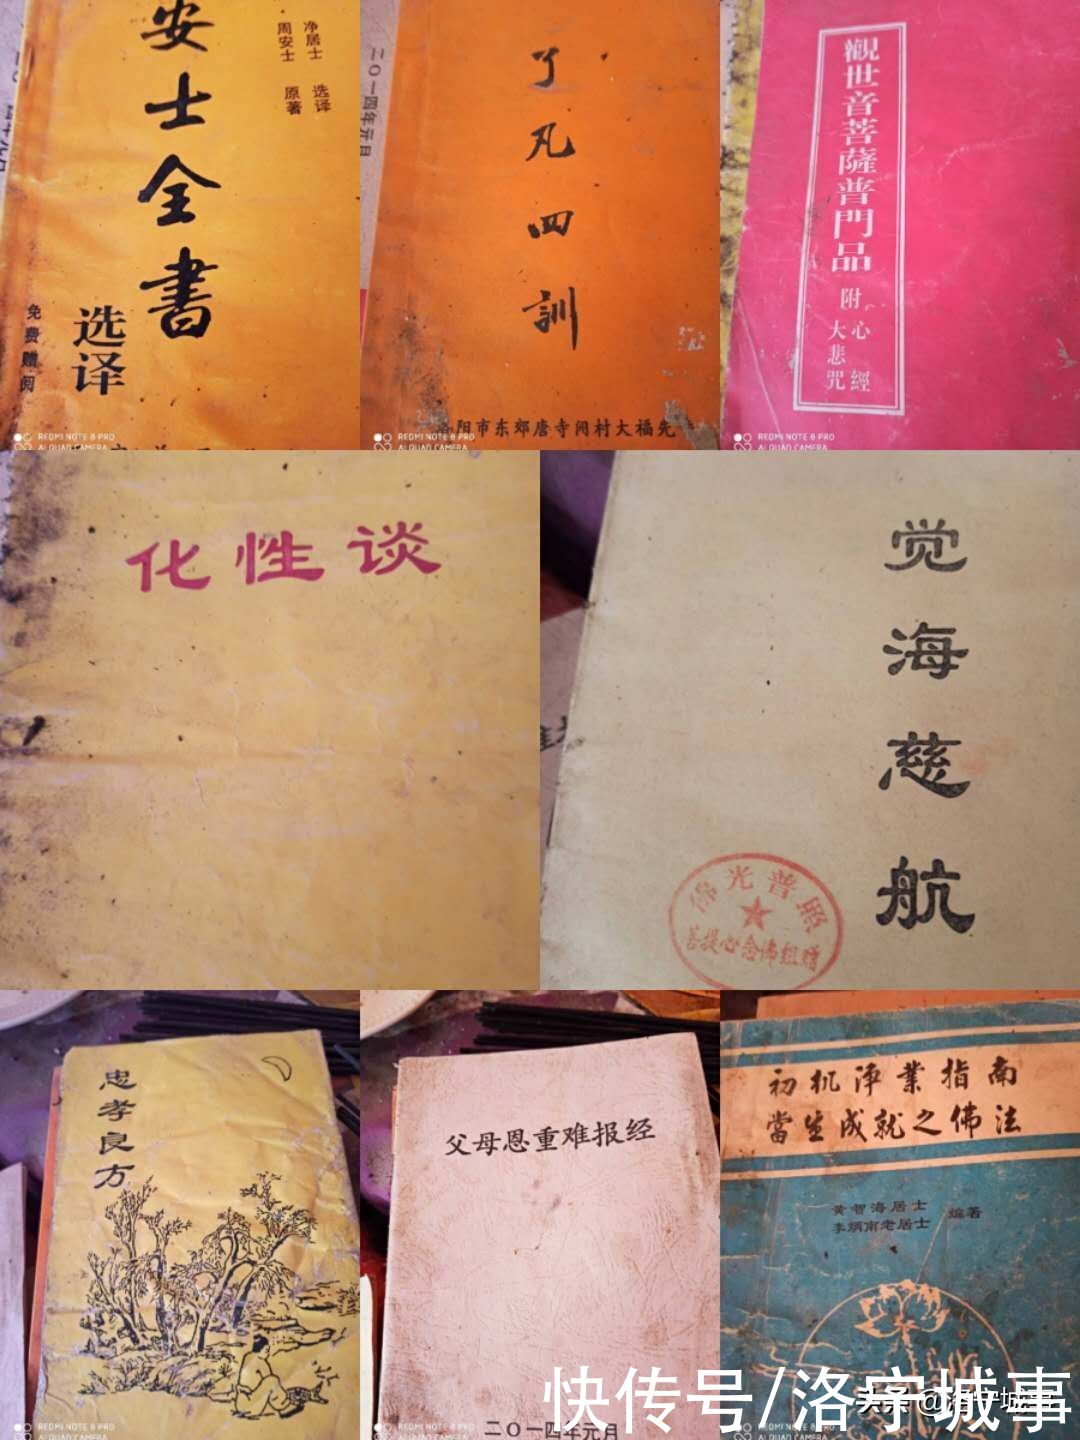 安士全書
选译
净居士 选译
周安士 原著
免费赠阅
REDMI NOTE 8 PRO
AI QUAD CAMERA
了凡四訓
二〇一四年元月
阳市东郊唐寺闸村大福先
REDMI NOTE 8 PRO
AI QUAD CAMERA
觀世音菩薩普門品
附
心經
大悲咒
REDMI NOTE 8 PRO
AI QUAD CAMERA
化性谈
觉海慈航
佛光普照
菩提心念佛组赠
忠孝良方
REDMI NOTE 8 PRO
AI QUAD CAMERA
父母恩重难报经
二〇一四年元月
REDMI NOTE 8 PRO
AI QUAD CAMERA
初机净業指南
當生成就之佛法
黄智海居士
李炳南老居士
编著
快传号/洛宁城事